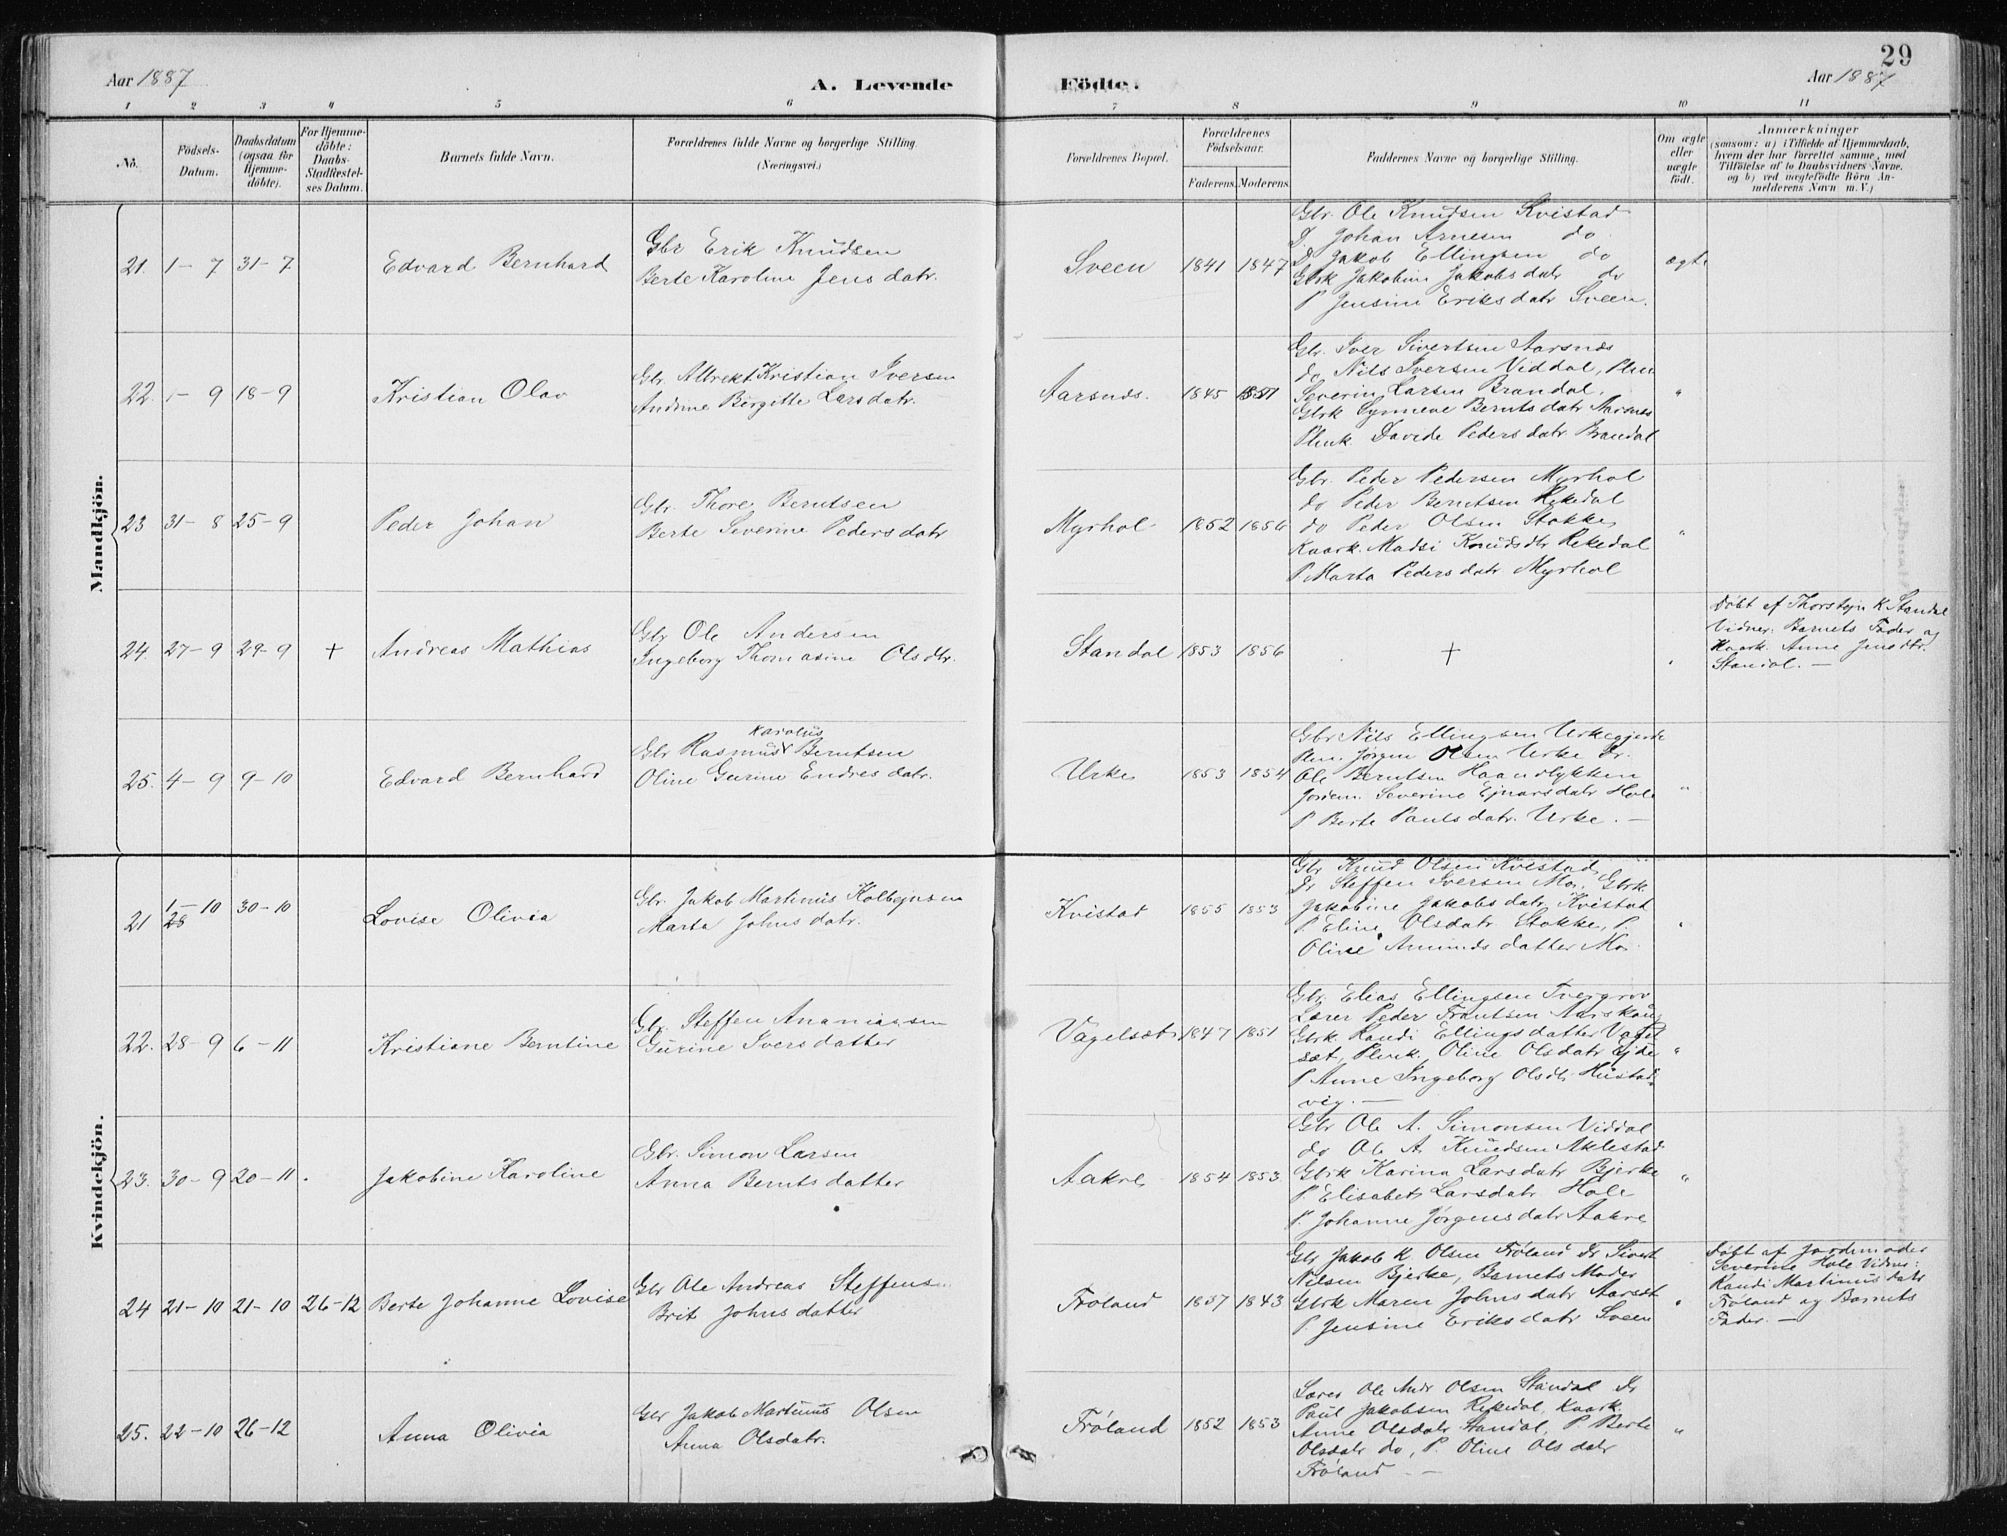 29
Aar 1887
A. Levende
Födte.
Aar 1887
1 2 3 4 5 6 7 8 9 10 11
No.
Födsels-
Datum.
Daabsdatum
(ogsaa for
Hjemme-
döbte).
For Hjemme-
döbte:
Daabs-
Stadfæstel-
ses Datum.
Barnets fulde Navn.
Forældrenes fulde Navne og borgerlige Stilling
(Næringsvei.)
Forældrenes Bopæl.
Forældrenes
Födselsaar.
Faderens. Moderens.
Faddernes Navne og borgerlige Stilling.
Om ægte
eller
uægte
födt.
Anmærkninger
(saasom: a) i Tilfælde af Hjemmedaab,
hvem der har forrettet samme, med
Tilföielse af to Daabsvidners Navne,
og b) ved uægtefödte Börn An-
melderens Navn m. V.)
Mandkjön.
21. 1-7 31-7 Edvard Bernhard
Gbr Erik Knudsen
Berte Karoline Jensdatr.
Sveen 1841 1847
Gbr. Ole Knudsen Kvistad
D. Johan Arnesen do
D. Jakob Ellingsen do
Gbrk Jakobine Jakobsdatr do
P. Jensine Eriksdatr Sveen.
ægte
22. 1-9 18-9 Kristian Olav
Gbr. Albrekt Kristian Iversen
Andrine Birgitte Larsdatr.
Aarsnæs. 1845 1851
Gbr. Iver Sivertsen Aarsnæs
do Nils Iversen Viddal, Plm
Severin Larsen Brandal,
Gbrk Synneve Berntsdatr Aarsnes
Plmk Davide Pedersdatr Brandal
"
23 31-8 25-9 Peder Johan
Gbr. Thore Berntsen
Berte Severine Pedersdatr
Myrhol 1852 1856
Gbr. Peder Pedersen Myrhol
do Peder Berntsen Rekedal
do Peder Olsen Stokke
Kaark. Madsi Knudsdtr Rekedal
P. Marta Pedersdatr Myrhol
"
24. 27-9 29-9 + Andreas Mathias
Gbr Ole Andersen
Ingeborg Thomasine Olsdtr.
Standal 1853 1856
+
"
Döbt af Thorstejn K. Standal
Vidner: Barnets Fader og
Kaark. Anne Jensdtr.
Standal. —
25. 4-9 9-10 Edvard Bernhard
Karolus
Gbr Rasmus Berntsen
Oline Gurine Endresdatr.
Urke 1853 1854
Gbr Nils Ellingsen Urkegjerde
Plm. Jørgen Olsen Urke Dr.
Ole Berntsen Haandlykken
Jordem. Severine Ejnarsdatr Hole
P Berte Paulsdatr. Urke. —
"
Kvindekjön.
21 1-10 28 30-10 Lovise Olivia
Gbr. Jakob Martinus Kolbejnsen
Marta Johnsdatr.
Kvistad 1855 1853
Gbr Knud Olsen Kvistad,
Dr Steffen Iversen Mo, Gbrk
Jakobine Jakobsdatr Kvistad
P. Eline Olsdatr Stokke, P.
Oline Amundsdatter Mo.
"
22. 28-9 6-11 Kristiane Berntine
Gbr. Steffen Ananiassen
Gurine Iversdatter
Vagelsæt 1847 1851
Gbr. Elias Ellingsen Tvergrov
Lærer Peder Frantsen Aarskaug
Gbrk Randi Ellingsdatter Vagel
sæt, Plmk. Oline Olsdatr
P Anne Ingeborg Olsdtr Hustad-
vig. —
"
23. 30-9 20-11 Jakobine Karoline
Gbr. Simon Larsen
Anna Berntsdatter
Aakre 1854 1853
Gbr Ole A. Simonsen Viddal
do Ole A. Knudsen Aklestad
Gbrk Karina Larsdatr Bjerke
P. Elisabet Larsdatr Hole
P. Johanne Jørgensdatr Aakre
"
24 21-10 21-10 26-12 Berte Johanne Lovise
Gbr Ole Andreas Steffensen
Brit Johnsdatter
Frøland 1857 1843
Gbr Jakob K. Olsen Frøland Dr Sivert
Nilsen Bjerke, Barnets Moder
Gbrk Maren Johnsdatr Aarsæt
P Jensine Eriksdatr Sveen
"
Döbt af Jordemoder
Severine Hole Vidner:
Randi Martinusdatr
Frøland og Barnets
Fader. —
25. 22-10 26-12 Anna Olivia
Gbr Jakob Martinus Olsen
Anna Olsdatr.
Frøland 1852 1853
Lærer Ole Andr Olsen Standal Dr
Paul Jakobsen Rekedal, Kaark.
Anne Olsdatr Standal, P. Berte
Olsdatr do, P. Oline Olsdatr
Frøland —
"